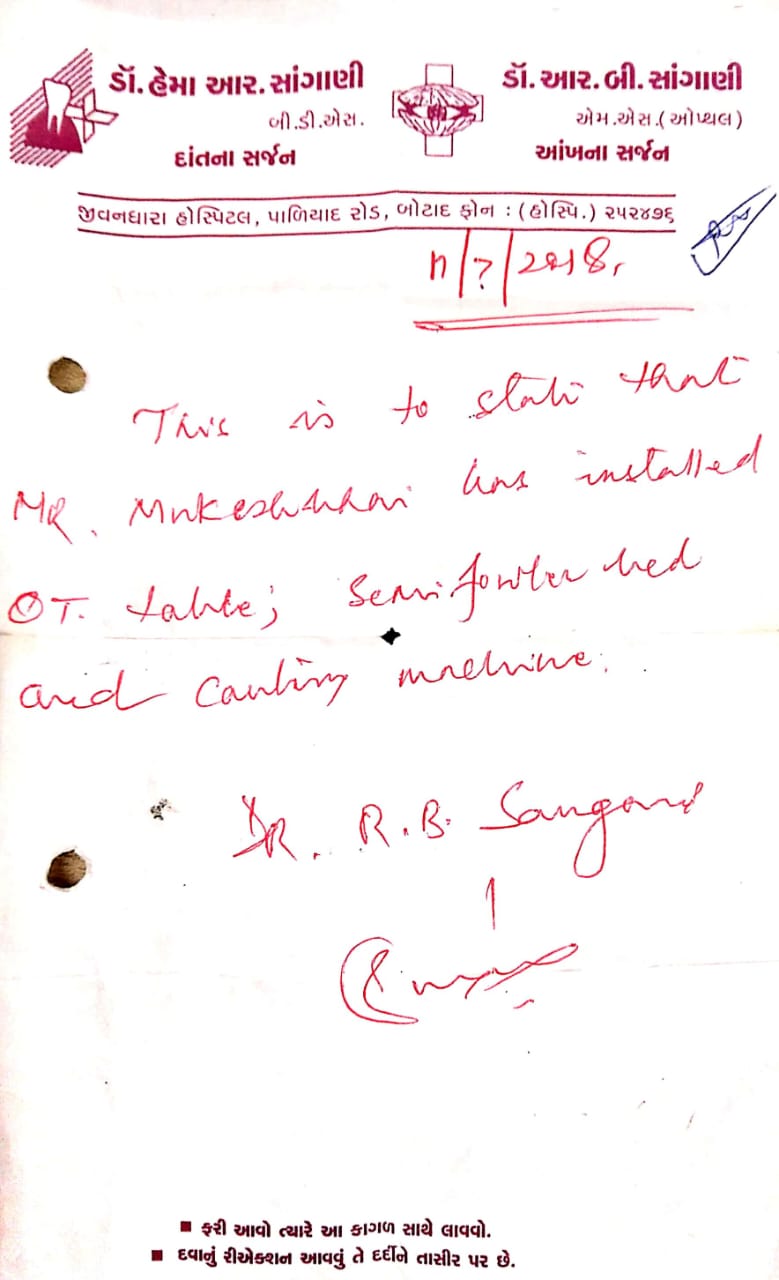 ડૉ. હેમા આર. સાંગાણી
બી.ડી.એસ.
દાંતના સર્જન
ડૉ. આર. બી. સાંગાણી
એમ.એસ. (ઓપ્થલ)
આંખના સર્જન
જીવનધારા હોસ્પિટલ, પાળિયાદ રોડ, બોટાદ ફોન : (હોસ્પિ.) ૨૫૨૪૭૬
This is to state that
MR. Mukeshbhai has installed
OT. table; Semi fowler bed
and machine.
DR. R.B. Sangani
■ ફરી આવો ત્યારે આ કાગળ સાથે લાવવો.
■ દવાનું રીએક્શન આવવું તે દર્દીને તાસીર પર છે.